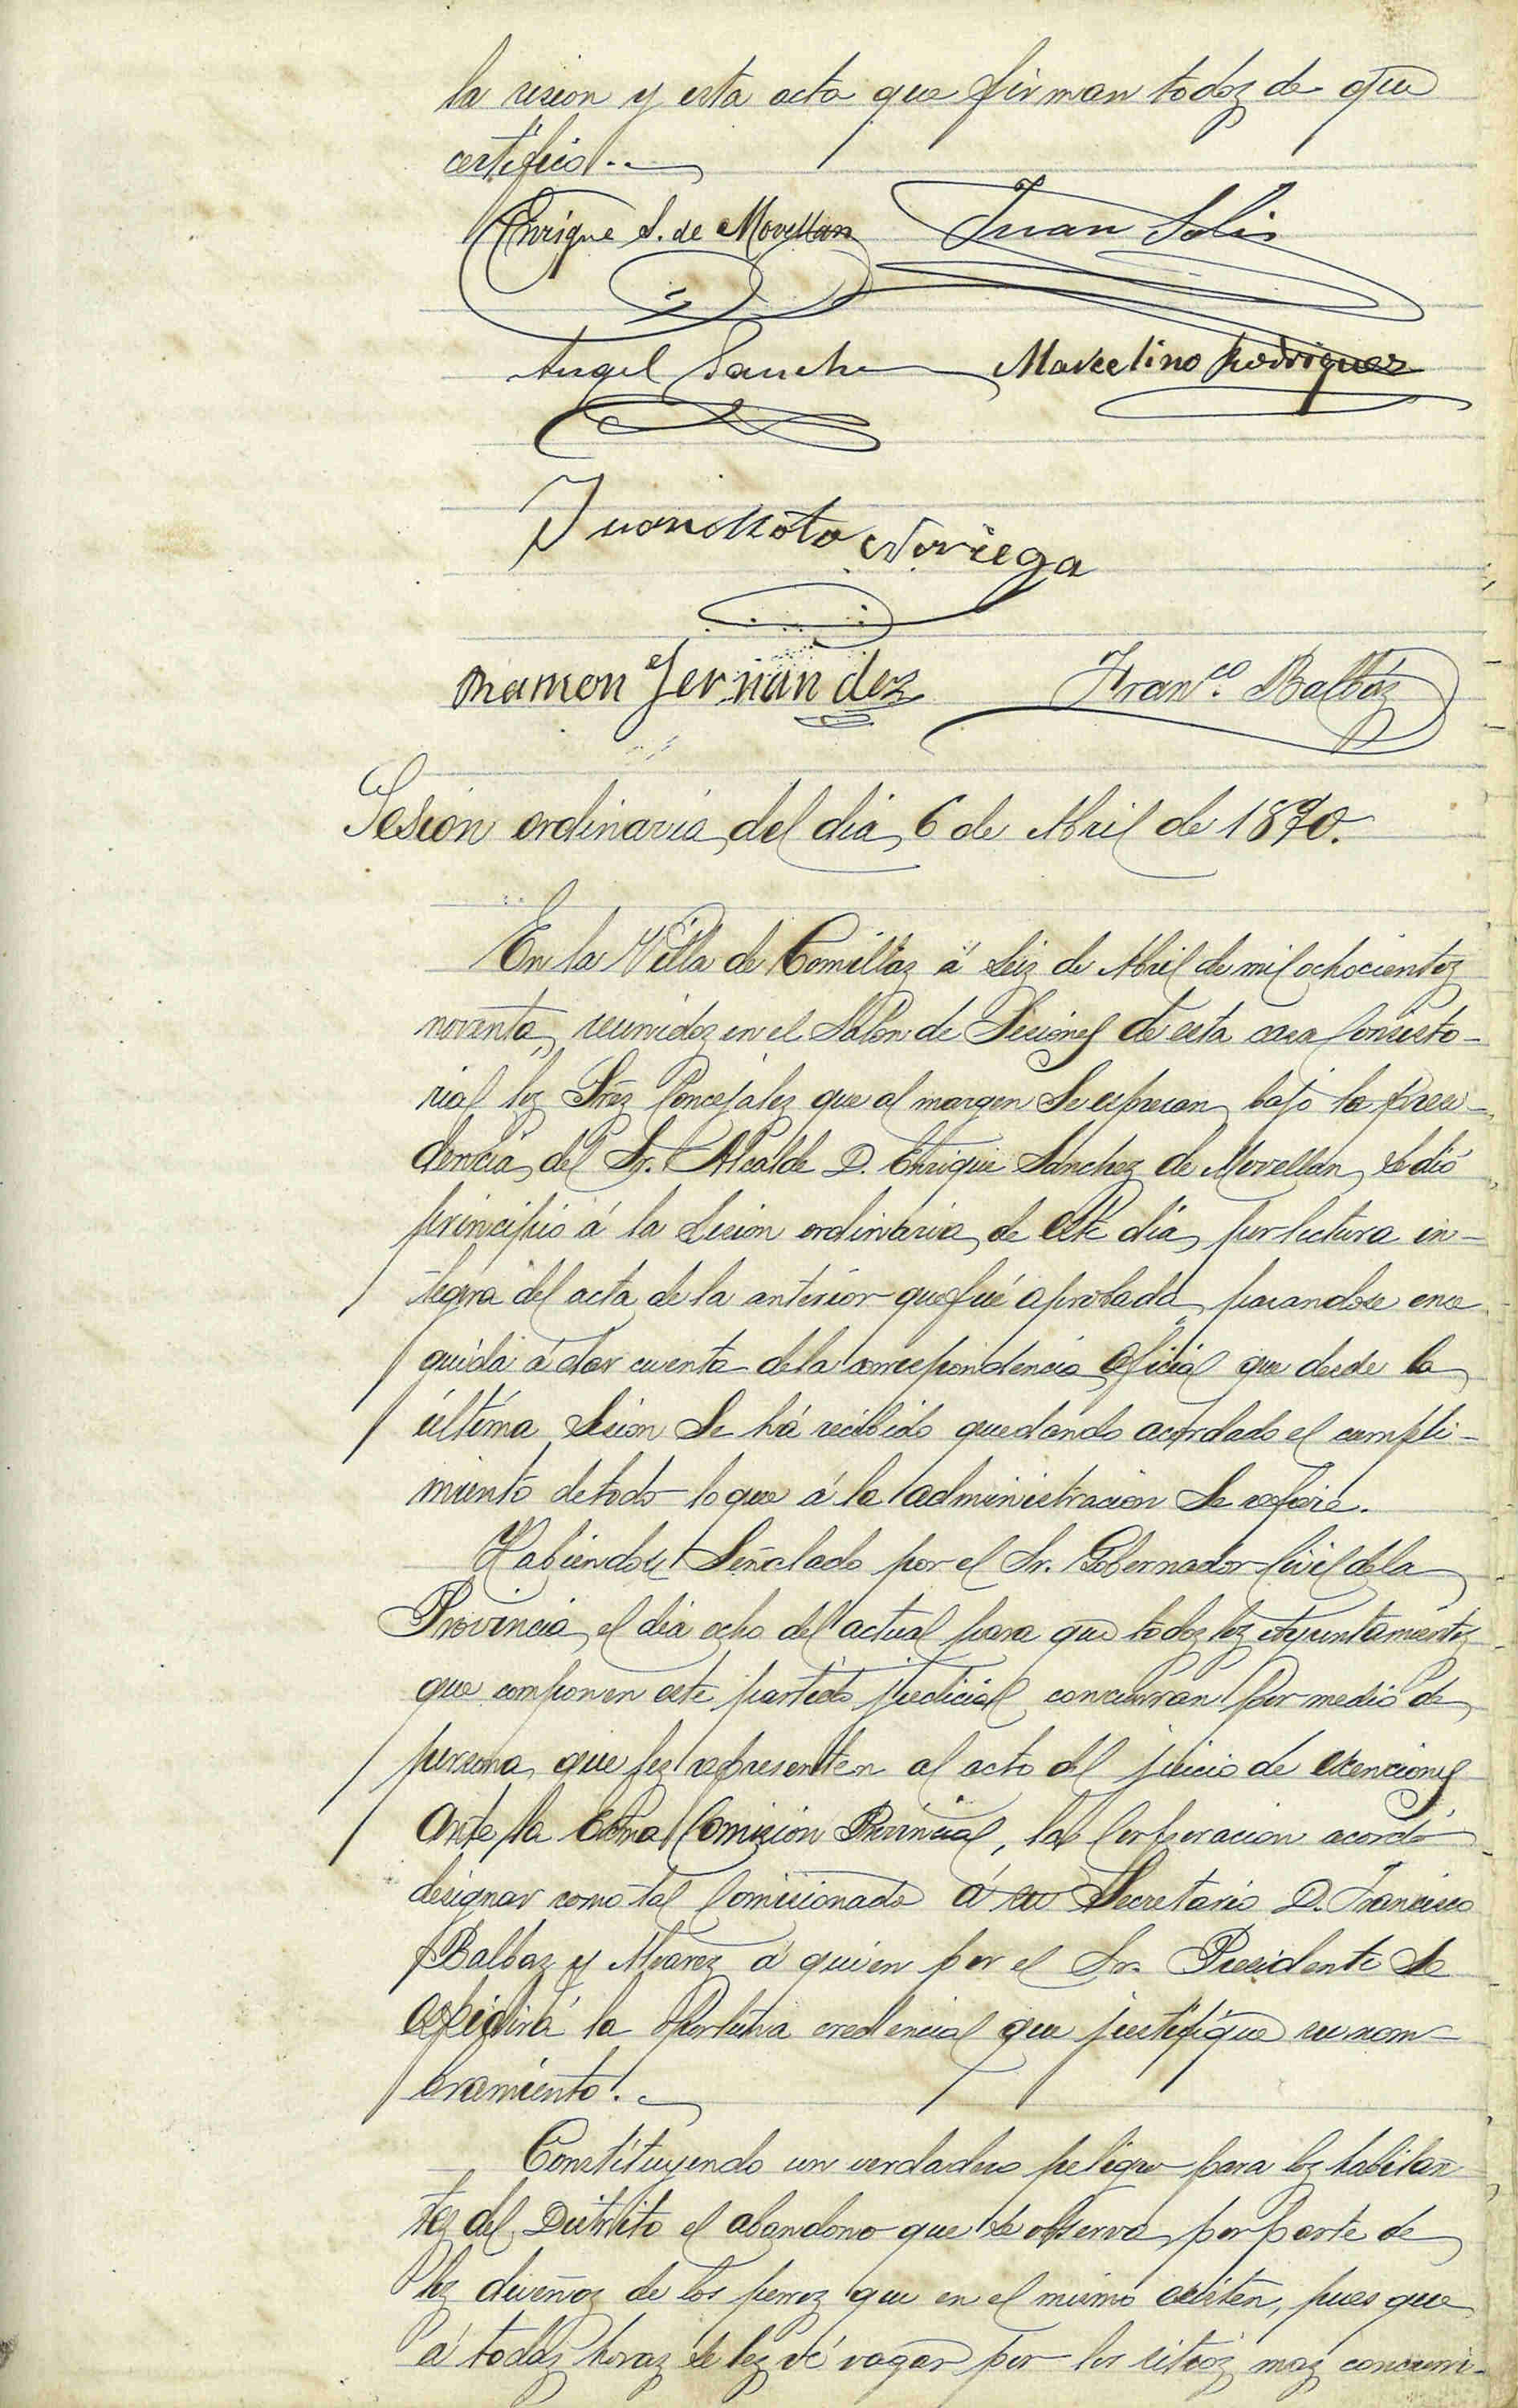 la sesion y esta acta que firman todos de que
certifico.
Enrique S. de Movellan Juan Solis
Angel Sanchez Marcelino Rodriguez
Juan Mota Noriega
Ramon Fernandez Fran.co Balbás
Sesion ordinaria del dia 6 de Abril de 1890.
En la Villa de Comillas á seis de Abril de mil ochocientos
noventa, reunidos en el Salon de Sesiones de esta casa Consisto-
rial los Sres Concejales que al margen se espresan bajo la presi-
dencia del Sr. Alcalde D. Enrique Sanchez de Movellan, se dió
principio á la sesion ordinaria de este dia por lectura in-
tegra del acta de la anterior que fué aprobada pasandose ense
guida á dar cuenta de la correspondencia oficial que desde la
última sesion se há recibido quedando acordado el cumpli-
miento de todo lo que á la administracion se refiere.
Habiendose señalado por el Sr. Gobernador Civil de la
Provincia el dia ocho del actual para que todos los Ayuntamientos
que componen este partido judicial concurran por medio de
persona que les representen al acto del juicio de exenciones
ante la Exma Comision Provincial, la Corporacion acordó
designar como tal Comisionado á su Secretario D. Francisco
Balbas y Alvarez á quien por el Sr. Presidente se
espedirá la oportuna credencial que justifique su nom-
bramiento.
Constituyendo un verdadero peligro para los habitan
tes del Distrito el abandono que se observa por parte de
los dueños de los perros que en el mismo existen, pues que
á todas horas se les vé vagar por los sitios mas concurri-